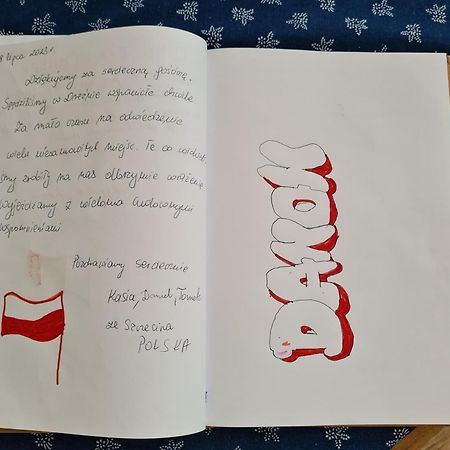 8 lipca 2023 r
Dziękujemy za serdeczną gościnę.
Spędziliśmy w Dreźnie wspaniałe chwile
Za mało czasu na odwiedzenie
wielu niesamowitych miejsc. Te co widzieli
śmy zrobiły na nas olbrzymie wrażenie
Wyjeżdżamy z wieloma cudownymi
wspomnieniami
Pozdrawiamy serdecznie
Kasia, Daniel, Tomek
ze Szczecina
POLSKA
DANOK